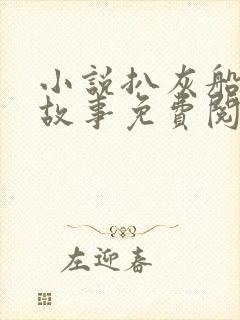 小說扒灰船
故事免費閱
左迎春